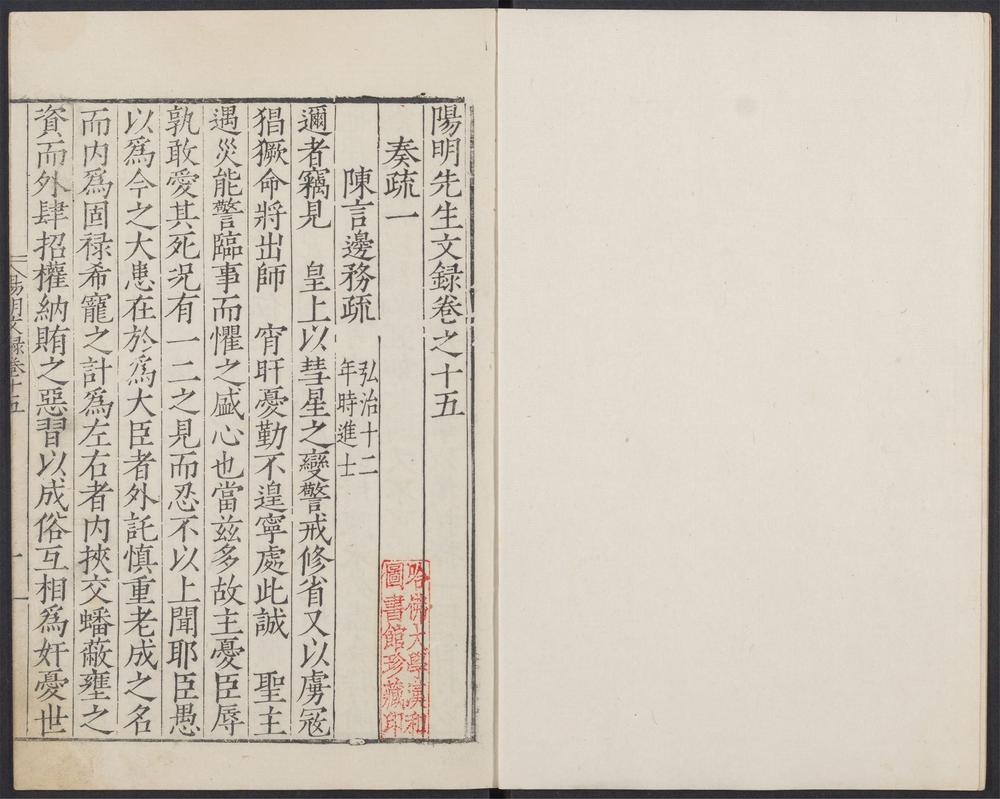 陽明先生文録卷之十五
奏疏一
陳言邊務疏
弘治十二
年時進士
邇者竊見　皇上以彗星之變警戒修省又以虜寇
猖獗命將出師　宵旰憂勤不遑寧處此誠　聖主
遇災能警臨事而懼之盛心也當兹多故主憂臣辱
孰敢愛其死况有一二之見而忍不以上聞耶臣愚
以為今之大患在於為大臣者外託慎重老成之名
而内為固禄希寵之計為左右者内挾交蟠蔽壅之
資而外肆招權納賄之惡習以成俗互相為奸憂世
陽明文録卷十五
一
哈佛大學漢和
圖書館珍藏印